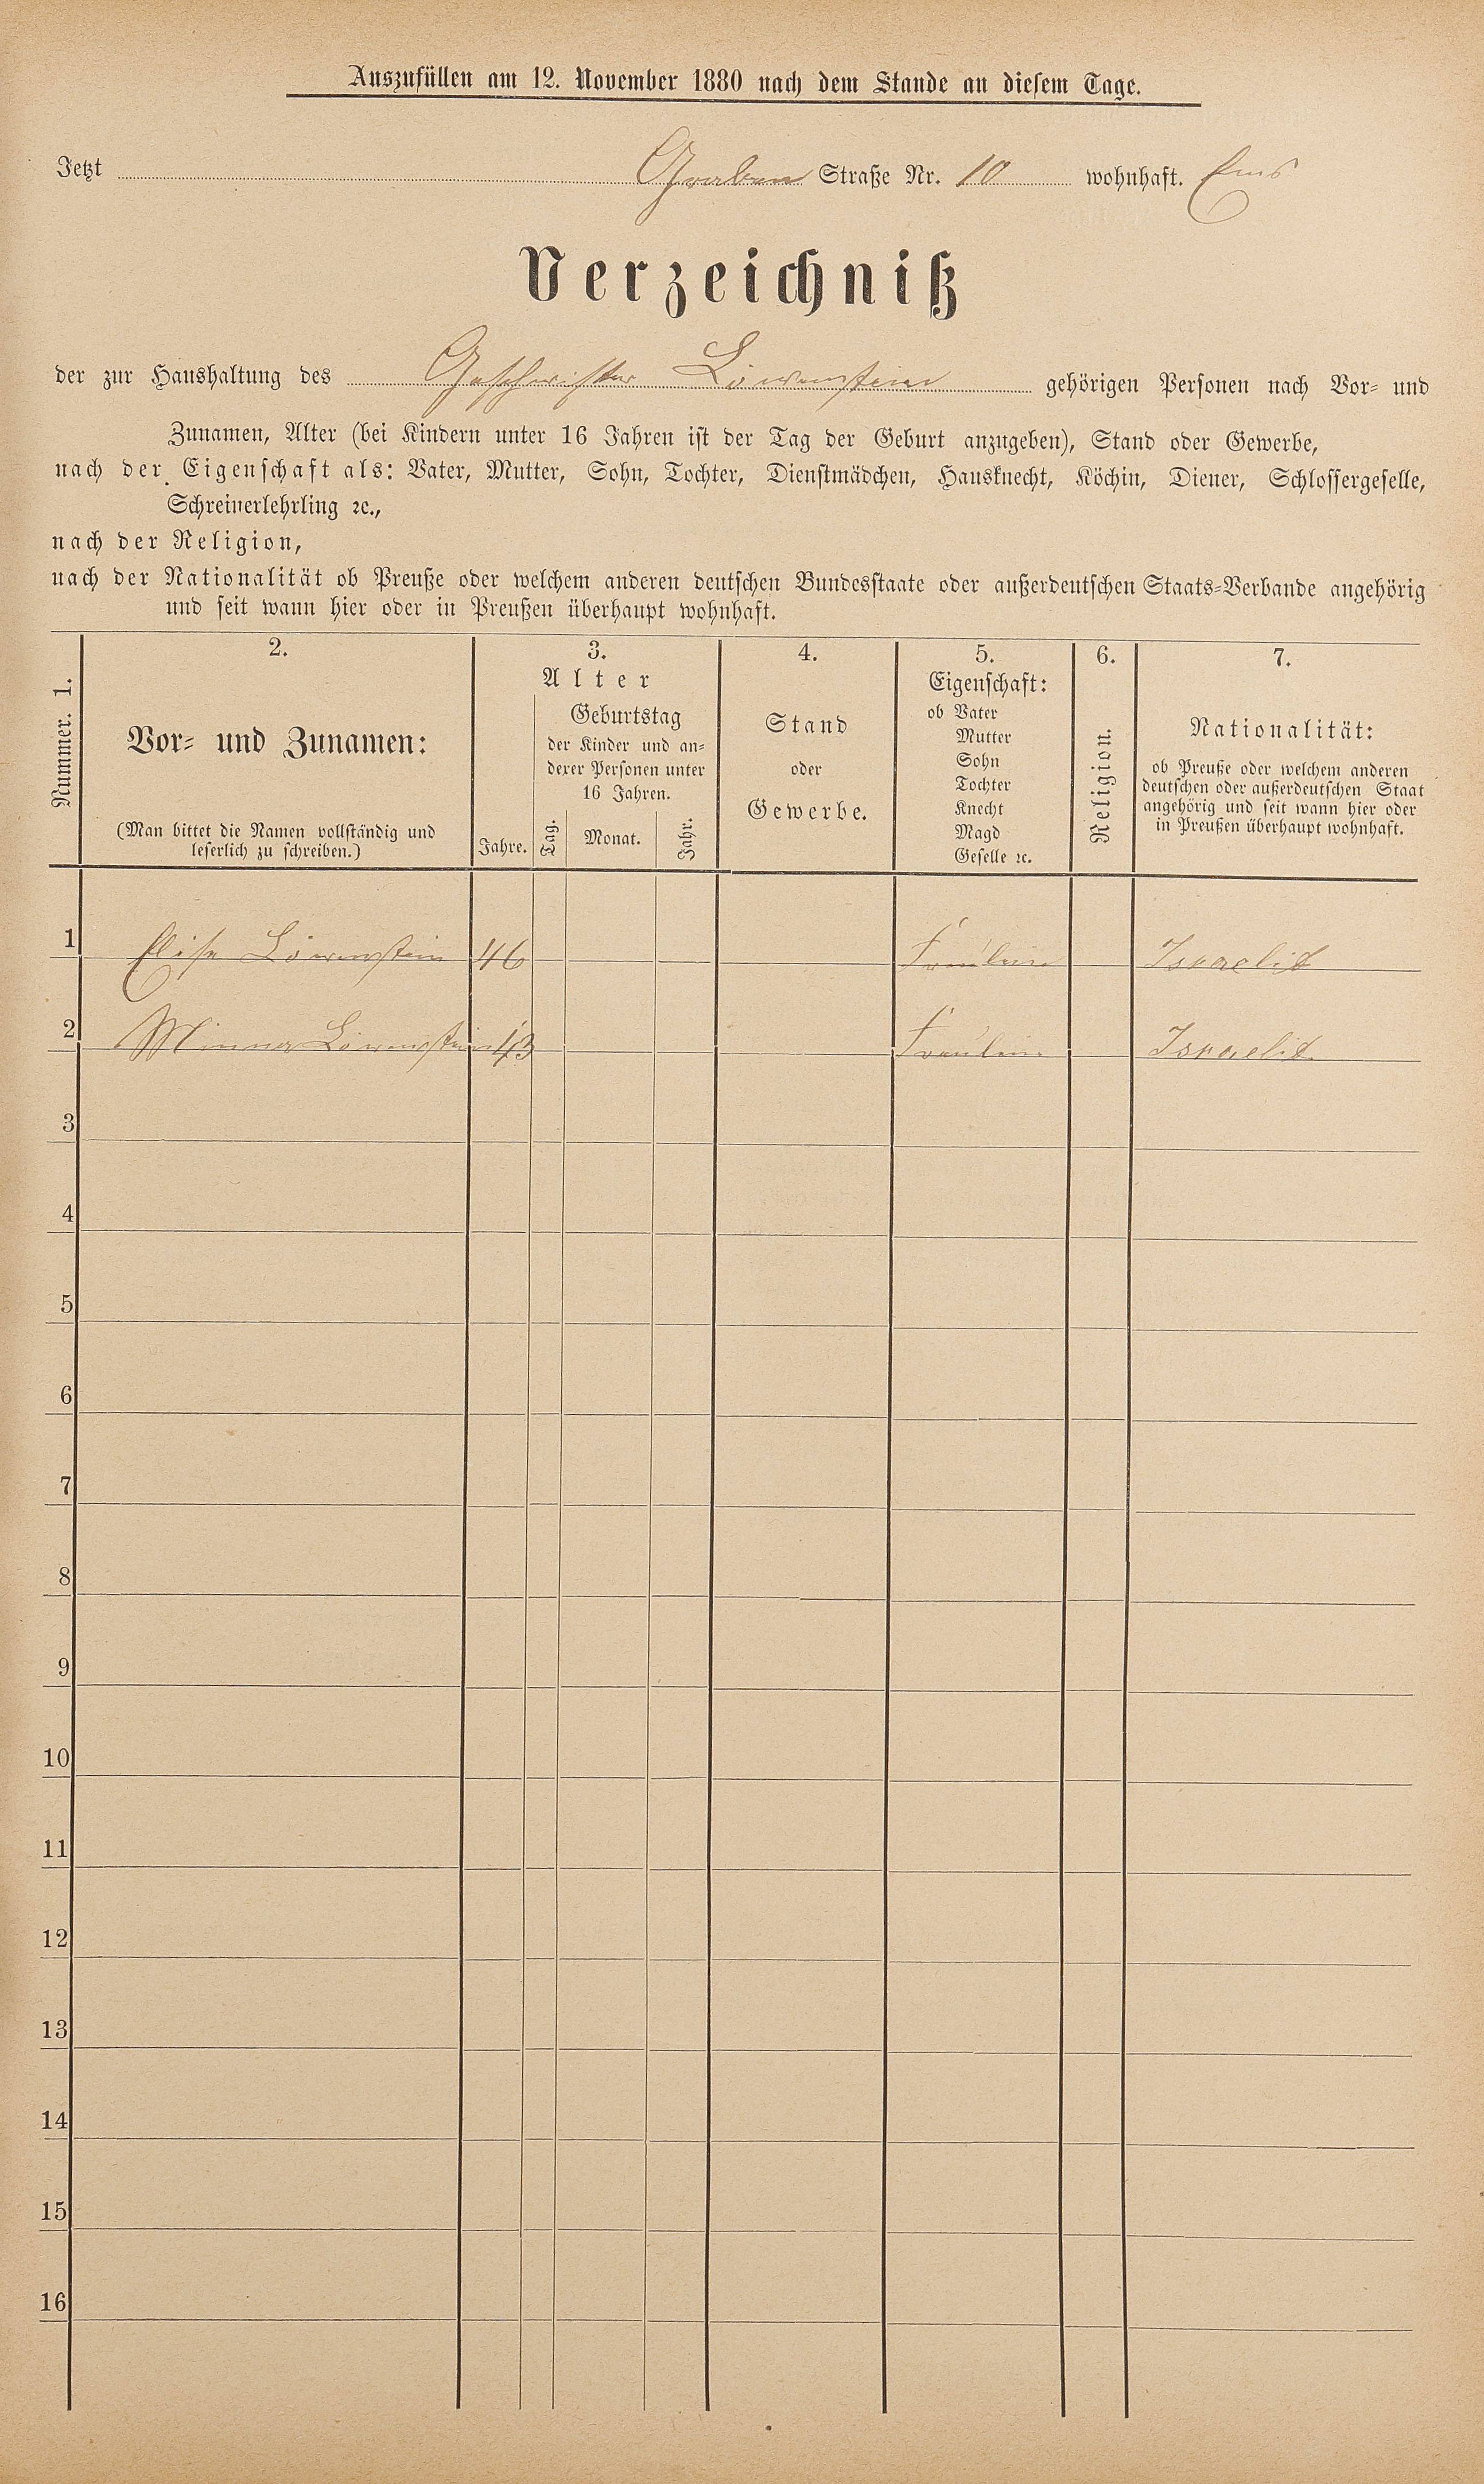 Auszufüllen am 12. November 1880 nach dem Stande an diesem Tage.
Jetzt Graben Straße Nr. 10 wohnhaft. Ems
Verzeichniß
der zur Haushaltung des Geschwister Löwenstein gehörigen Personen nach Vor- und
Zunamen, Alter (bei Kindern unter 16 Jahren ist der Tag der Geburt anzugeben), Stand oder Gewerbe,
nach der Eigenschaft als: Vater, Mutter, Sohn, Tochter, Dienstmädchen, Hausknecht, Köchin, Diener, Schlossergeselle,
Schreinerlehrling ꝛc.,
nach der Religion,
nach der Nationalität ob Preuße oder welchem anderen deutschen Bundesstaate oder außerdeutschen Staats-Verbande angehörig
und seit wann hier oder in Preußen überhaupt wohnhaft.
Nummer. 1.
2.
Vor- und Zunamen:
(Man bittet die Namen vollständig und
leserlich zu schreiben.)
3.
Alter
Jahre.
Geburtstag
der Kinder und an-
derer Personen unter
16 Jahren.
Tag.
Monat.
Jahr.
4.
Stand
oder
Gewerbe.
5.
Eigenschaft:
ob Vater
Mutter
Sohn
Tochter
Knecht
Magd
Geselle ꝛc.
6.
Religion.
7.
Nationalität:
ob Preuße oder welchem anderen
deutschen oder außerdeutschen Staat
angehörig und seit wann hier oder
in Preußen überhaupt wohnhaft.
1 Elise Löwenstein 46 Fräulein Israelit
2 Minna Löwenstein 43 Fräulein Israelit
3
4
5
6
7
8
9
10
11
12
13
14
15
16